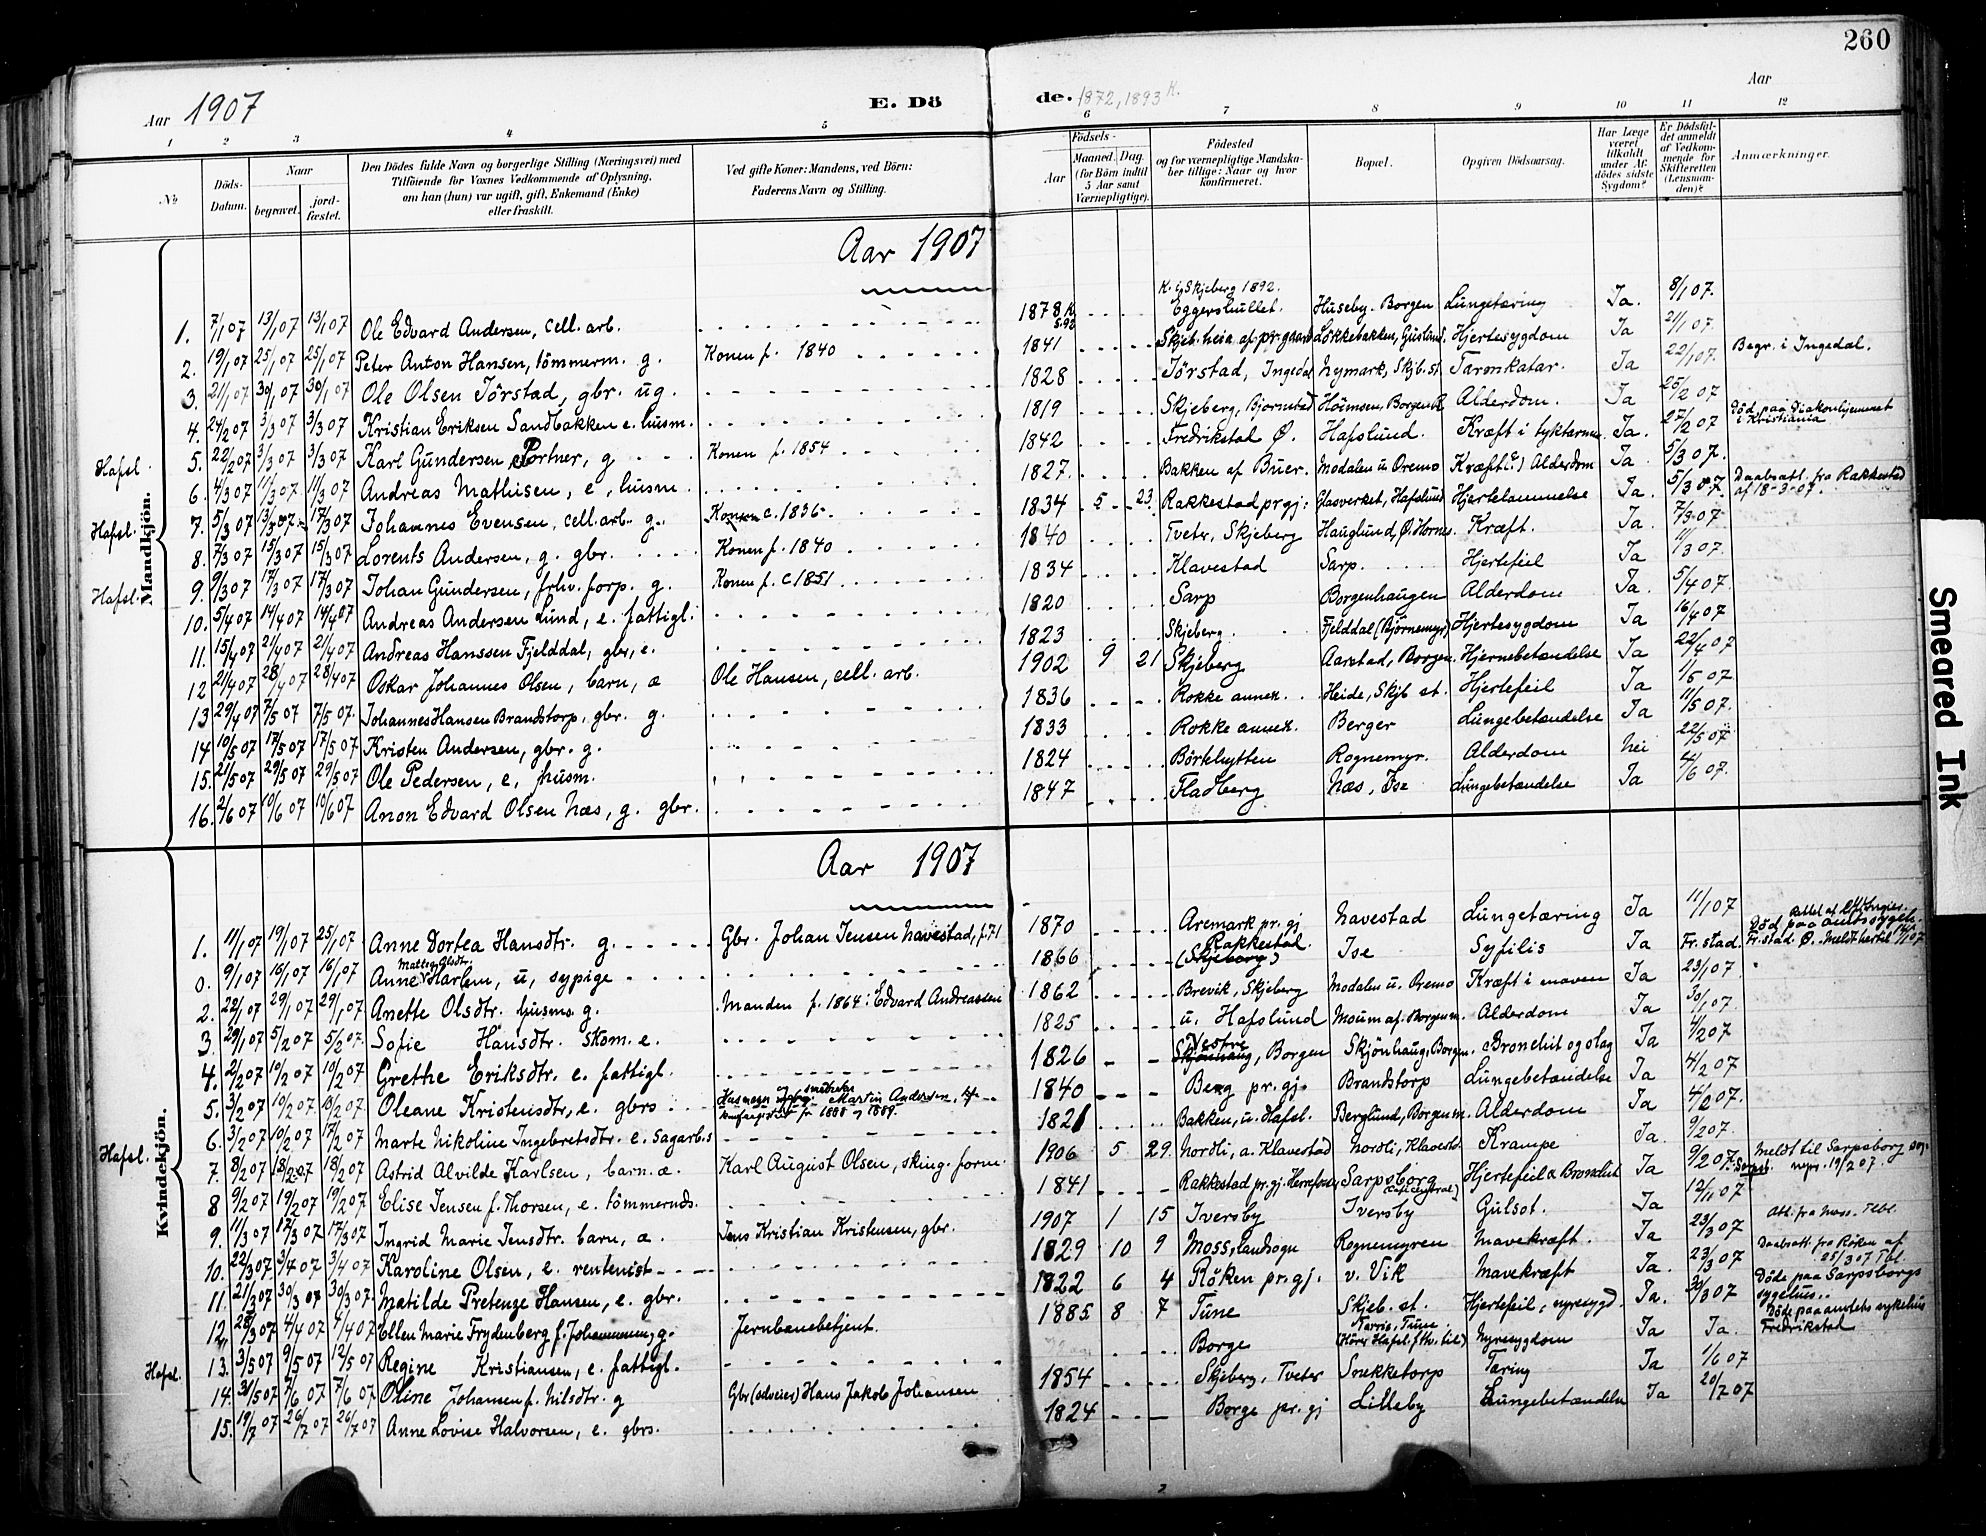 260
Aar 1907
E. Dö
de. 1872, 1893 K.
Aar
1 2 3 4 5 6 7 8 9 10 11 12
№
Döds-Datum.
Naar
begravet.
jord-fæstet.
Den Dödes fulde Navn og borgerlige Stilling (Næringsvei) med
Tilföiende for Voxnes Vedkommende af Oplysning,
om han (hun) var ugift, gift, Enkemand (Enke)
eller fraskilt.
Ved gifte Koner: Mandens, ved Börn:
Faderens Navn og Stilling.
Födsels-
Aar
Maaned. Dag.
(for Börn indtil
5 Aar samt
Værnepligtige).
Födested
og for værnepligtige Mandska-
ber tillige: Naar og hvor
Konfirmeret.
Bopæl.
Opgiven Dödsaarsag.
Har Læge
været
tilkaldt
under Af-
dödes sidste
Sygdom?
Er Dödsfal-
det anmeldt
af Vedkom-
mende for
Skifteretten
(Lensman-
den)?
Anmærkninger.
Mandkjön.
Aar 1907
1. 7/1 07 13/1 07 13/1 07 Ole Edvard Andersen, cell. arb. 1878 K. i Skjeberg 1892. Eggershullet Huseby. Borgen Lungetæring Ja. 8/1 07.
2. 19/1 07 25/1 07 25/1 07 Peter Anton Hansen, tömmerm. g. Konen f. 1840 1841 Skjeb. heia af pr. gaard Lökkebakken, Hjertesygdom Ja 21/1 07.
3. 21/1 07 30/1 07 30/1 07 Ole Olsen Törstad, gbr. ug. 1828 Törstad, Ingedal Nymark, Skjb. st. Tarmkatar. Ja 22/1 07. Begr. i Ingedal.
4. 24/2 07 3/3 07 3/3 07 Kristian Eriksen Sandbakken e. husm. 1819 Skjeberg, Bjornstad Alderdom. Ja 25/2 07
Hafsl. 5. 22/2 07 3/3 07 3/3 07 Karl Gundersen Portner, g Konen f. 1854 1842 Fredrikstad Ö. Hafslund. Kræft i tyktarmen Ja. 27/2 07 Död paa Diakonhjemmet i Kristiania
6. 4/3 07 11/3 07 11/3 07 Andreas Mathisen, e, husm 1827. Bakken af Buer. Modalen u Oremo Kræft(?) Alderdom Ja 5/3 07.
Hafsl. 7. 5/3 07 13/3 07 17/3 07 Johannes Evensen, cell. arb. g. Konen c. 1836 1834 5 23 Rakkestad prgj: Glasverket, Hafslund Hjertelammelse Ja. 5/3 07. Daabsatt. fra Rakkestad af 18-3-07.
8. 7/3 07 15/3 07 15/3 07 Lorents Andersen, g. gbr. Konen f. 1840 1840 Tveter, Skjeberg Hauglund, Ö. Hornes Kræft. Ja. 7/3 07
Hafsl. 9. 9/3 07 17/3 07 17/3 07 Johan Gundersen, frhv. forp. g. Konen f. c 1851 1834 Klavestad Sarp. Hjertefeil Ja 11/3 07.
10. 5/4 07 14/4 07 14/4 07 Andreas Andersen Lund, e. fattigl. 1820 Sarp Borgenhaugen Alderdom Ja. 5/4 07
11. 15/4 07 21/4 07 21/4 07 Andreas Hanssen Fjelddal, gbr, e. 1823 Skjeberg. Fjelddal (Björnemyr) Hjertesygdom Ja 16/4 07
12 21/4 07 28/4 07 28/4 07 Oskar Johannes Olsen, barn, æ Ole Hansen, cell. arb. 1902 9 21 Skjeberg Aarstad, Borgen. Hjernebetændelse Ja 22/4 07
13 29/4 07 7/5 07 7/5 07. Johannes Hansen Brandstorp, gbr. g. 1836 Rokke annex. Heide, Skjb st. Hjertefeil Ja 1/5 07
14 10/5 07 17/5 07 17/5 07 Kristen Andersen, gbr. g. 1833 Rokke annex. Berger Lungebetændelse Ja 11/5 07.
15. 21/5 07 29/5 07 29/5 07 Ole Pedersen, e, husm. 1824 Börkhytten Rognemyr. Alderdom Nei 22/5 07
16. 2/6 07 10/6 07 10/6 07 Anon Edvard Olsen Næs, g. gbr. 1847 Fladberg Næs, Ise Lungebetændelse Ja 4/6 07.
Kvindekjön.
Aar 1907
1. 11/1 07 19/1 07 25/1 07 Anne Dortea Hansdtr. g. Gbr. Johan Jensen Navestad, f. 71 1870 Aremark pr. gj Navestad Lungetæring Ja 11/1 07
0. 9/1 07 16/1 07 16/1 07 Anne Harlem, u, sypige 1866 Rakkestad. (Skjeberg) Ise Syfilis Ja Fr. stad. Död paa amtssygeh. Fr. stad Ö. Meldt hertil 14/1 07
2. 22/1 07 29/1 07 29/1 07 Anette Olsdtr. husms g. Manden f. 1864: Edvard Andreassen 1862 Brevik, Skjeberg Modalen u. Oremo Kræft i maven Ja 23/1 07
3. 29/1 07 5/2 07 5/2 07. Sofie Hansdtr. Skom. e. 1825 u. Hafslund Moum af. Borgenm. Alderdom Ja 30/1 07
4. 2/2 07 10/2 07 10/2 07 Grethe Eriksdtr. e. fattigl. 1826 Vestre Skjönhaug, Borgen Skjönhaug, Borgen. Bronchit og slag Ja 4/2 07
5. 3/2 07 10/2 07 13/2 07 Oleane Kristensdtr, e. gbrs Martin Andersen, 1840 Berg pr. gj. Brandstorp Lungebetændelse Ja 4/2 07
6. 3/2 07 10/2 07 17/2 07 Marte Nikoline Ingebretsdtr. e. Sagarb.s 1821 Bakken, u. Hafsl. Berglund, Borgenm. Alderdom Ja 4/2 07.
Hafsl. 7. 8/2 07 18/2 07 18/2 07 Astrid Alvilde Karlsen, barn. æ. Karl August Olsen, sking. form. 1906 5 29 Nordli, a. Klavestad Nordli, Klavest. Krampe Ja. 9/2 07.
8 9/2 07 19/2 07 19/2 07 Elise Jensen f. Thorsen, e. tömmermds. 1841 Rakkestad pr. gj. Sarpsborg Hjertefeil & Bronchit Ja 9/2 07 Meldt til Sarpsborg 19/2 07.
9. 11/3 07 17/3 07 17/3 07 Ingrid Marie Jensdtr. barn, æ. Jens Kristian Kristensen, gbr. 1907 1 15 Iversby Iversby Gulsot. Ja 12/1 07
10. 22/3 07 3/4 07 3/4 07 Karoline Olsen, e. rentenist 1829 10 9 Moss, landsogn Rognemyren Mavekræft. Ja 23/3 07 Att. fra Moss.
11. 21/3 07 30/3 07 30/3 07. Matilde Pretenze Hansen, e. gbr. 1822 6 4 Röken pr. gj. v. Vik Mavekræft Ja. 23/3 07 Daabsatt. fra Röken af 25/3 07
12. 28/3 07 4/4 07 4/4 07 Ellen Marie Frydenberg f. g. Jernbanebetjent. 1885 8 7 Tune Skjeb. st. Hjertefeil, nyresygd. Ja. 30/3 07 Döde paa Sarpsborgs sygehus.
Hafsl. 13. 3/5 07 9/5 07 12/5 07 Regine Kristiansen, e. fattigl. Borge Tune. Nyresygdom Ja Ja. Döde paa amtets sykehus Fredrikstad
14. 31/5 07 7/6 07 7/6 07 Oline Johansen f. Nilsdtr. g Gbr (selveier) Hans Jakob Johansen 1854 Skjeberg, Tveter Snekketorp Tæring Ja 1/6 07
15. 19/7 07 26/7 07 26/7 07 Anne Lovise Halvorsen, e. gbrs. 1824 Borge pr. gj Lilleby Lungebetændelse Ja 20/7 07
Smeared Ink